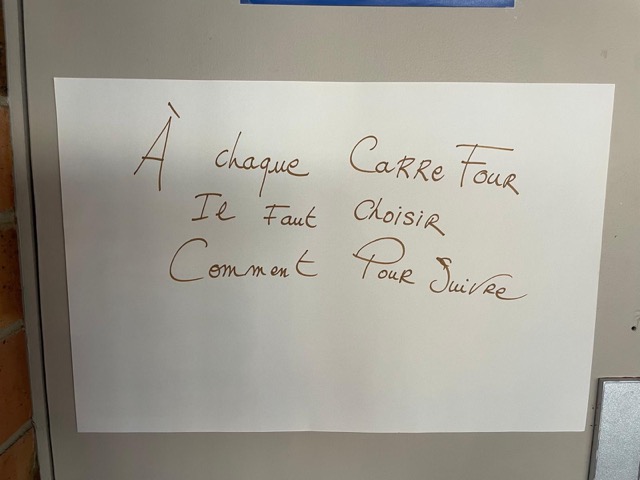 À chaque CaRReFouR
Il Faut Choisir
Comment PouR SuivRe